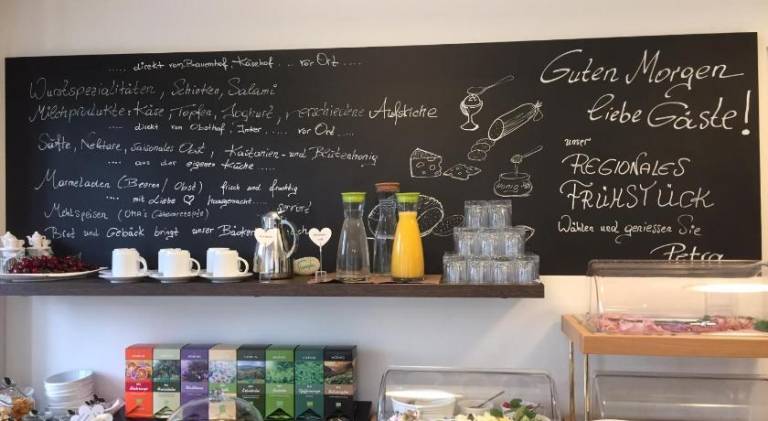 ..... direkt vom Bauernhof, Käsehof .... vor Ort ....
Wurstspezialitäten, Schinken, Salami
Milchprodukte: Käse, Topfen, Joghurt, verschiedene Aufstriche
.... direkt vom Obsthof, Imker ..... vor Ort ....
Säfte, Nektare, saisonales Obst, Kastanien- und Blütenhonig
.... aus der eigenen Küche ....
Marmeladen (Beeren/Obst) frisch und fruchtig
.... mit Liebe hausgemacht ....
Mehlspeisen (OMA's
Brot und Gebäck bringt unser Bäcker
Guten Morgen
liebe Gäste!
unser
REGIONALES
FRÜHSTÜCK
Wählen und geniessen Sie
Petra
Honig